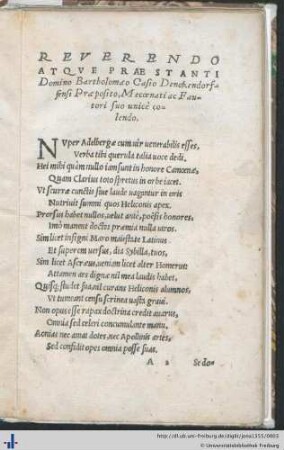 REVERENDO
ATQVE PRAESTANTI
Domino Bartholomæo Casio Denckendorf=
fensi Præposito, Mecœnati ac Fau=
tori suo unicè co=
lendo.
NVper Adelbergæ cum uir uenerabilis esses,
Verba tibi querula talia uoce dedi.
Hei mihi quàm nullo iam sunt in honore Camœnæ,
Quàm Clarius toto spretus in orbe iacet.
Vt scurræ cunctis siue laude uagantur in oris
Nutriuit summi quos Heliconis apex.
Prorsus habet nullos, uelut antè, poësis honores,
Imò manent doctos præmia nulla uiros.
Sim licet insigni Maro maiestate Latinus
Et superem uersus, dia Sibylla, tuos,
Sim licet Ascræus, ueniam licet alter Homerus
Attamen arc digna nil mea laudis habet.
Quisq; studet sua, nil curans Heliconis alumnos,
Vt tumeant censu scrinea uasta graui.
Non opus esse rapax doctrina credit auarus,
Omnia sed celeri concumulante manu,
Aonias nec amat dotes, nec Apollinis artes,
Sed confidit opes omnia posse suas.
A 2 Sedo=
http://dl.ub.uni-freiburg.de/diglit/jena1555/0003
© Universitätsbibliothek Freiburg